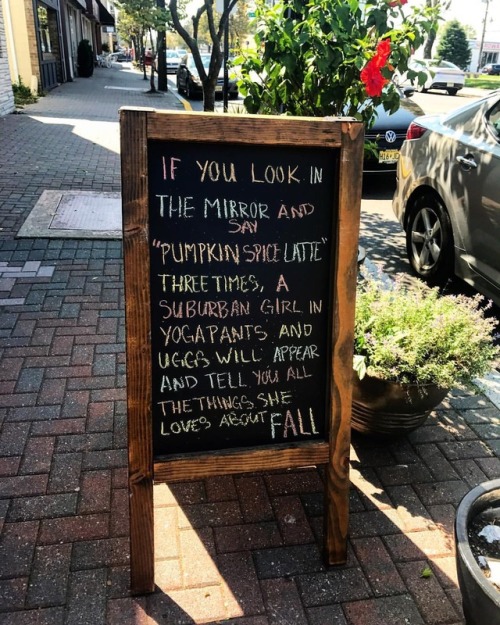 IF YOU LOOK IN
THE MIRROR AND
SAY
"PUMPKIN SPICE LATTE"
THREE TIMES, A
SUBURBAN GIRL IN
YOGA PANTS AND
UGGS WILL APPEAR
AND TELL YOU ALL
THE THINGS SHE
LOVES ABOUT FALL